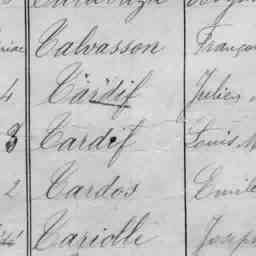 Talvasson Franço
4 Tardif Jules
3 Tardif Louis M
2 Tardos Emile
Tariolle Joseph